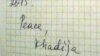 2015.
Peace,
Khadija